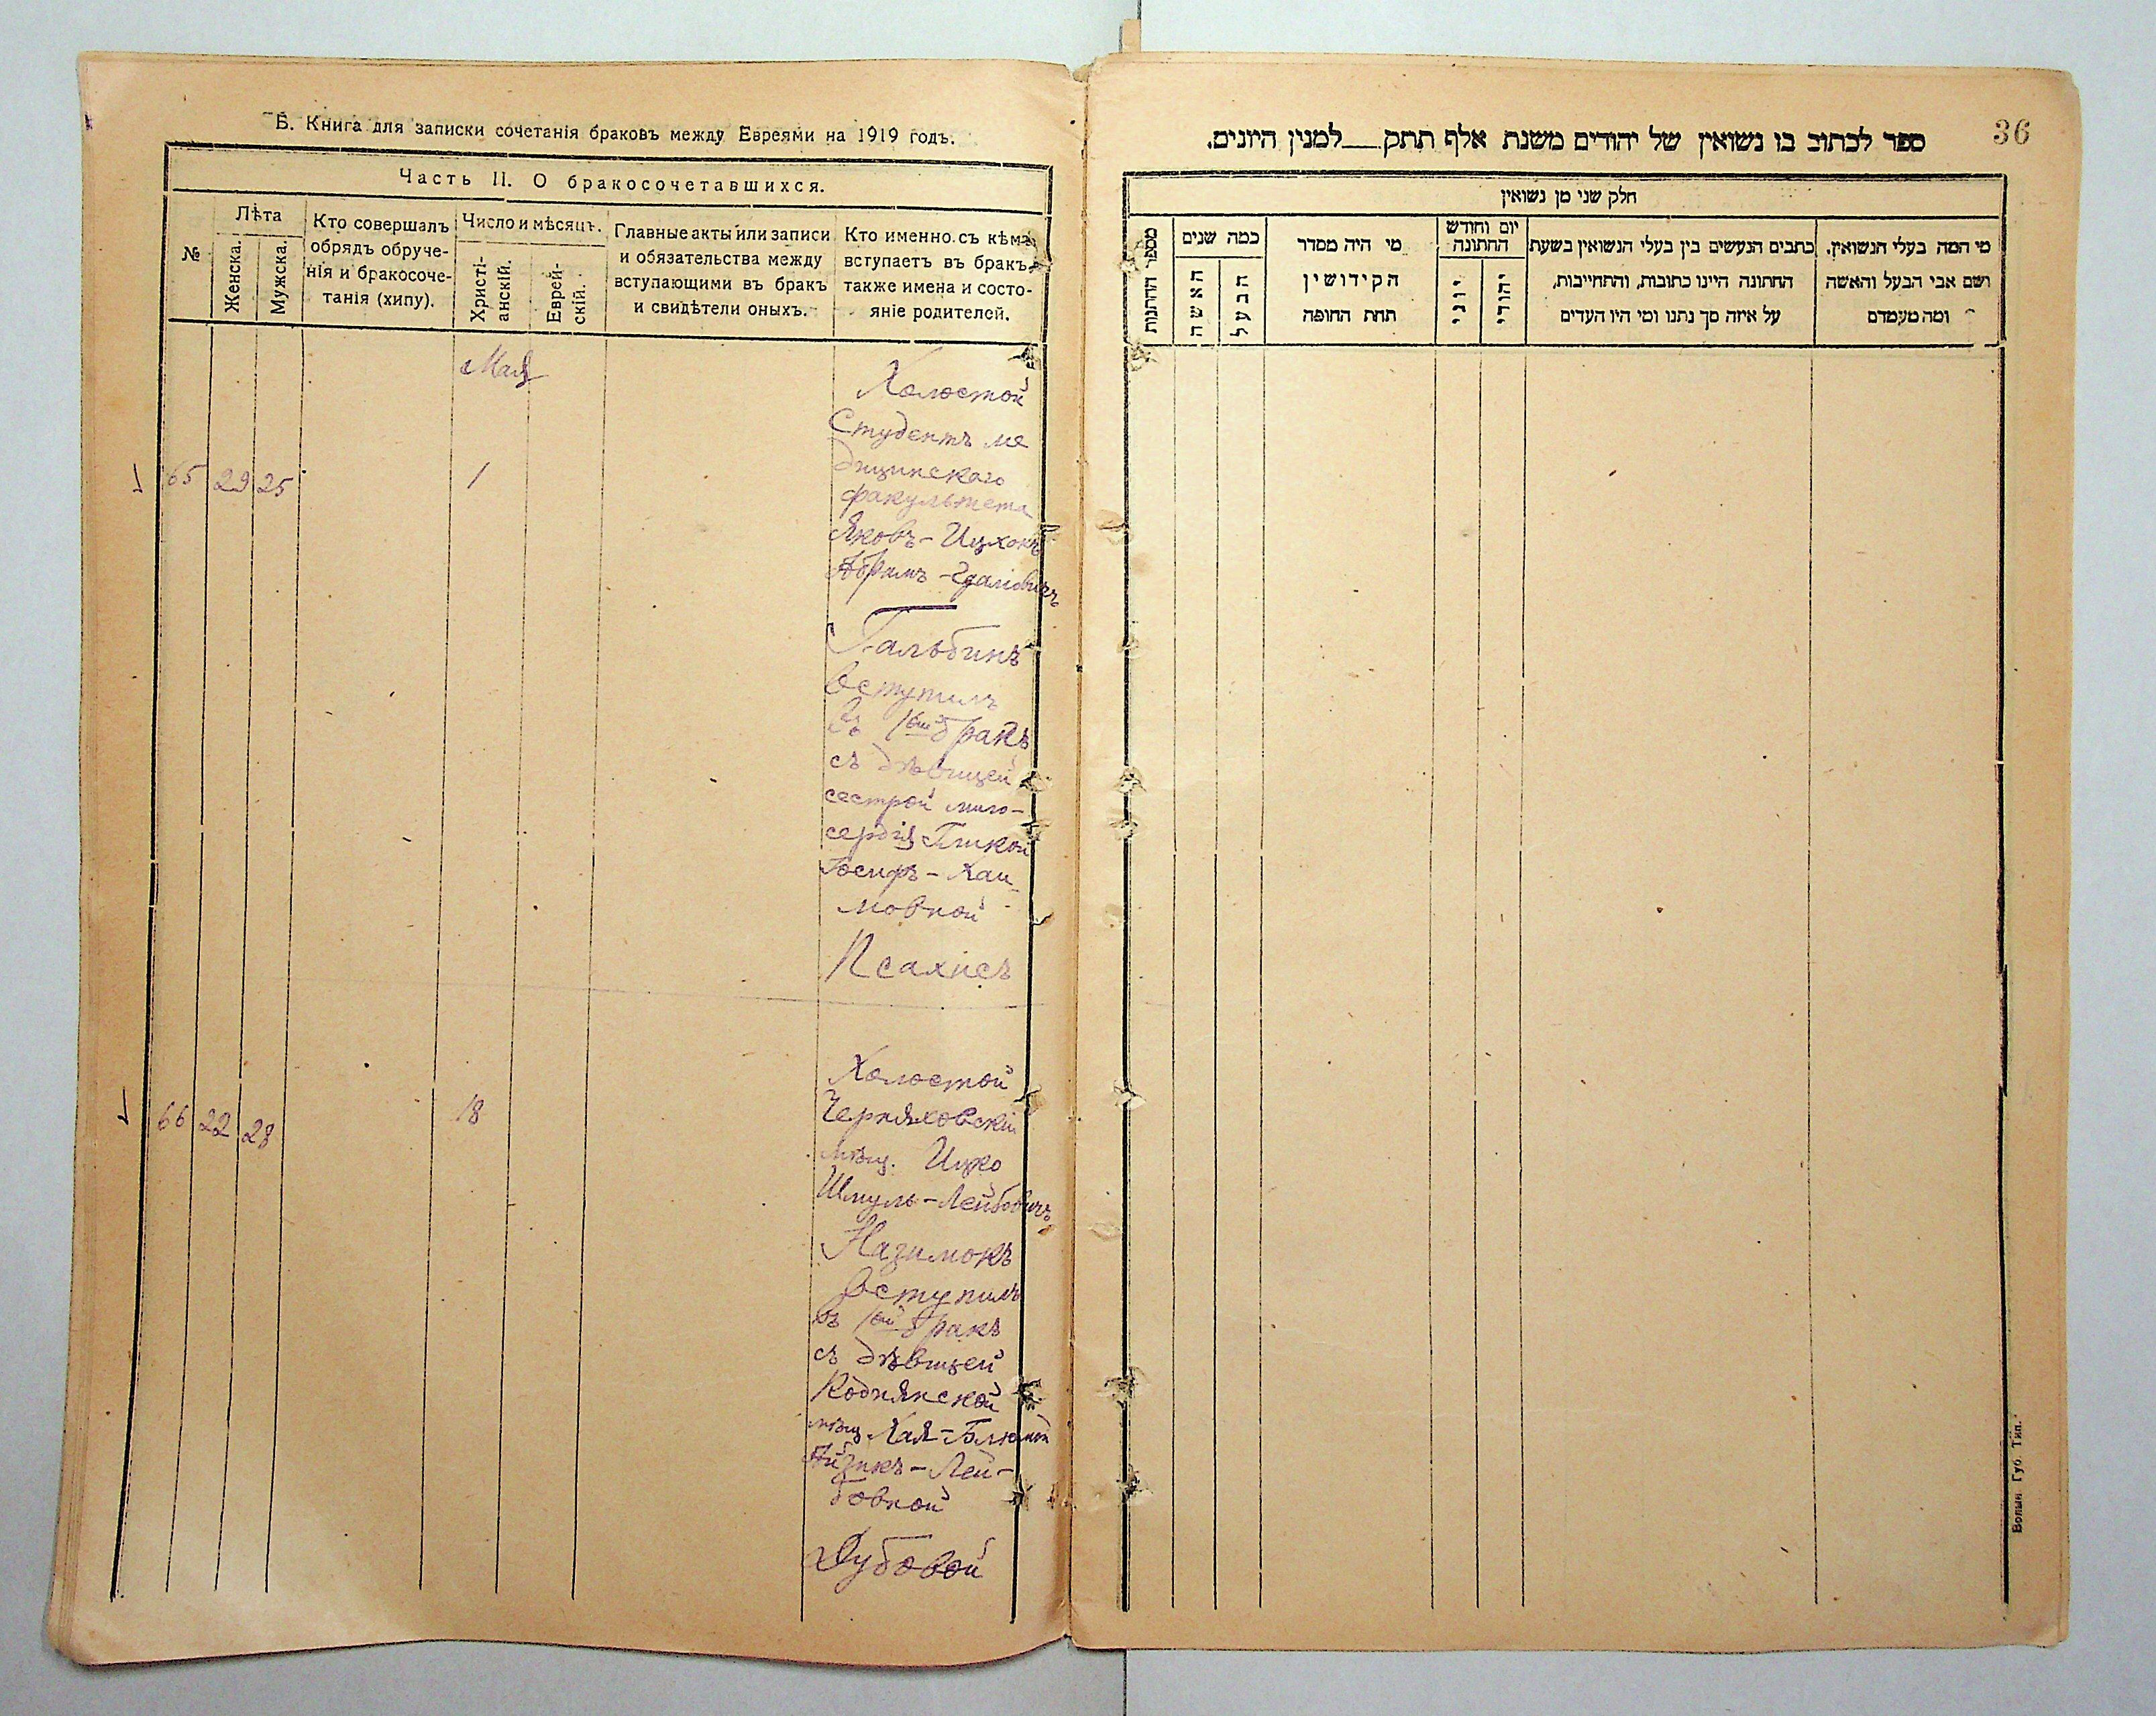 Б. Книга для записки сочетанія браковъ между Евреями на 1919 годъ.
Часть II. О бракосочетавшихся.
№
Лѣта
Женска.
Мужска.
Кто совершалъ
обрядъ обруче-
нія и бракосоче-
танія (хипу).
Число и мѣсяцъ.
Христі-
анскій.
Еврей-
скій.
Главные акты или записи
и обязательства между
вступающими въ бракъ
и свидѣтели оныхъ.
Кто именно съ кѣмъ
вступаетъ въ бракъ,
также имена и состо-
яніе родителей.
Мая
65 29 25 1
Холостой
Студентъ ме
дицинскаго
факультета
Яковъ-Ицхокъ
Абрамъ-Гдаліовичъ
Гальбинъ
вступилъ
въ 1ый бракъ
съ дѣвицей
сестрой мило-
сердія
Іосифъ-Хаи
мовной
Псахисъ
66 22 28 18
Холостой
Черняховскій
мѣщ. Ицко
Шмуль-Лейбовичъ
Назимокъ
вступилъ
въ 1ый бракъ
съ дѣвицей
Коднянской
мѣщ Хая-Блюмой
Айзикъ-Лей-
бовной
Дубовой
36
ספר לכתוב בו נשואין של יהודים משנת אלף תתק___למנין היונים.
חלק שני מן נשואין
מספר החתונות
כמה שנים
האשה
הבעל
מי היה מסדר
הקידושין
תחת החופה
יום וחודש
החתונה
יוני
יהודי
כתבים הנעשים בין בעלי הנשואין בשעת
החתונה היינו כתובות, והתחייבות,
על איזה סך נתנו ומי היו העדים
מי המה בעלי הנשואין,
ושם אבי הבעל והאשה
ומה מעמדם
Волын. Губ. Тип.